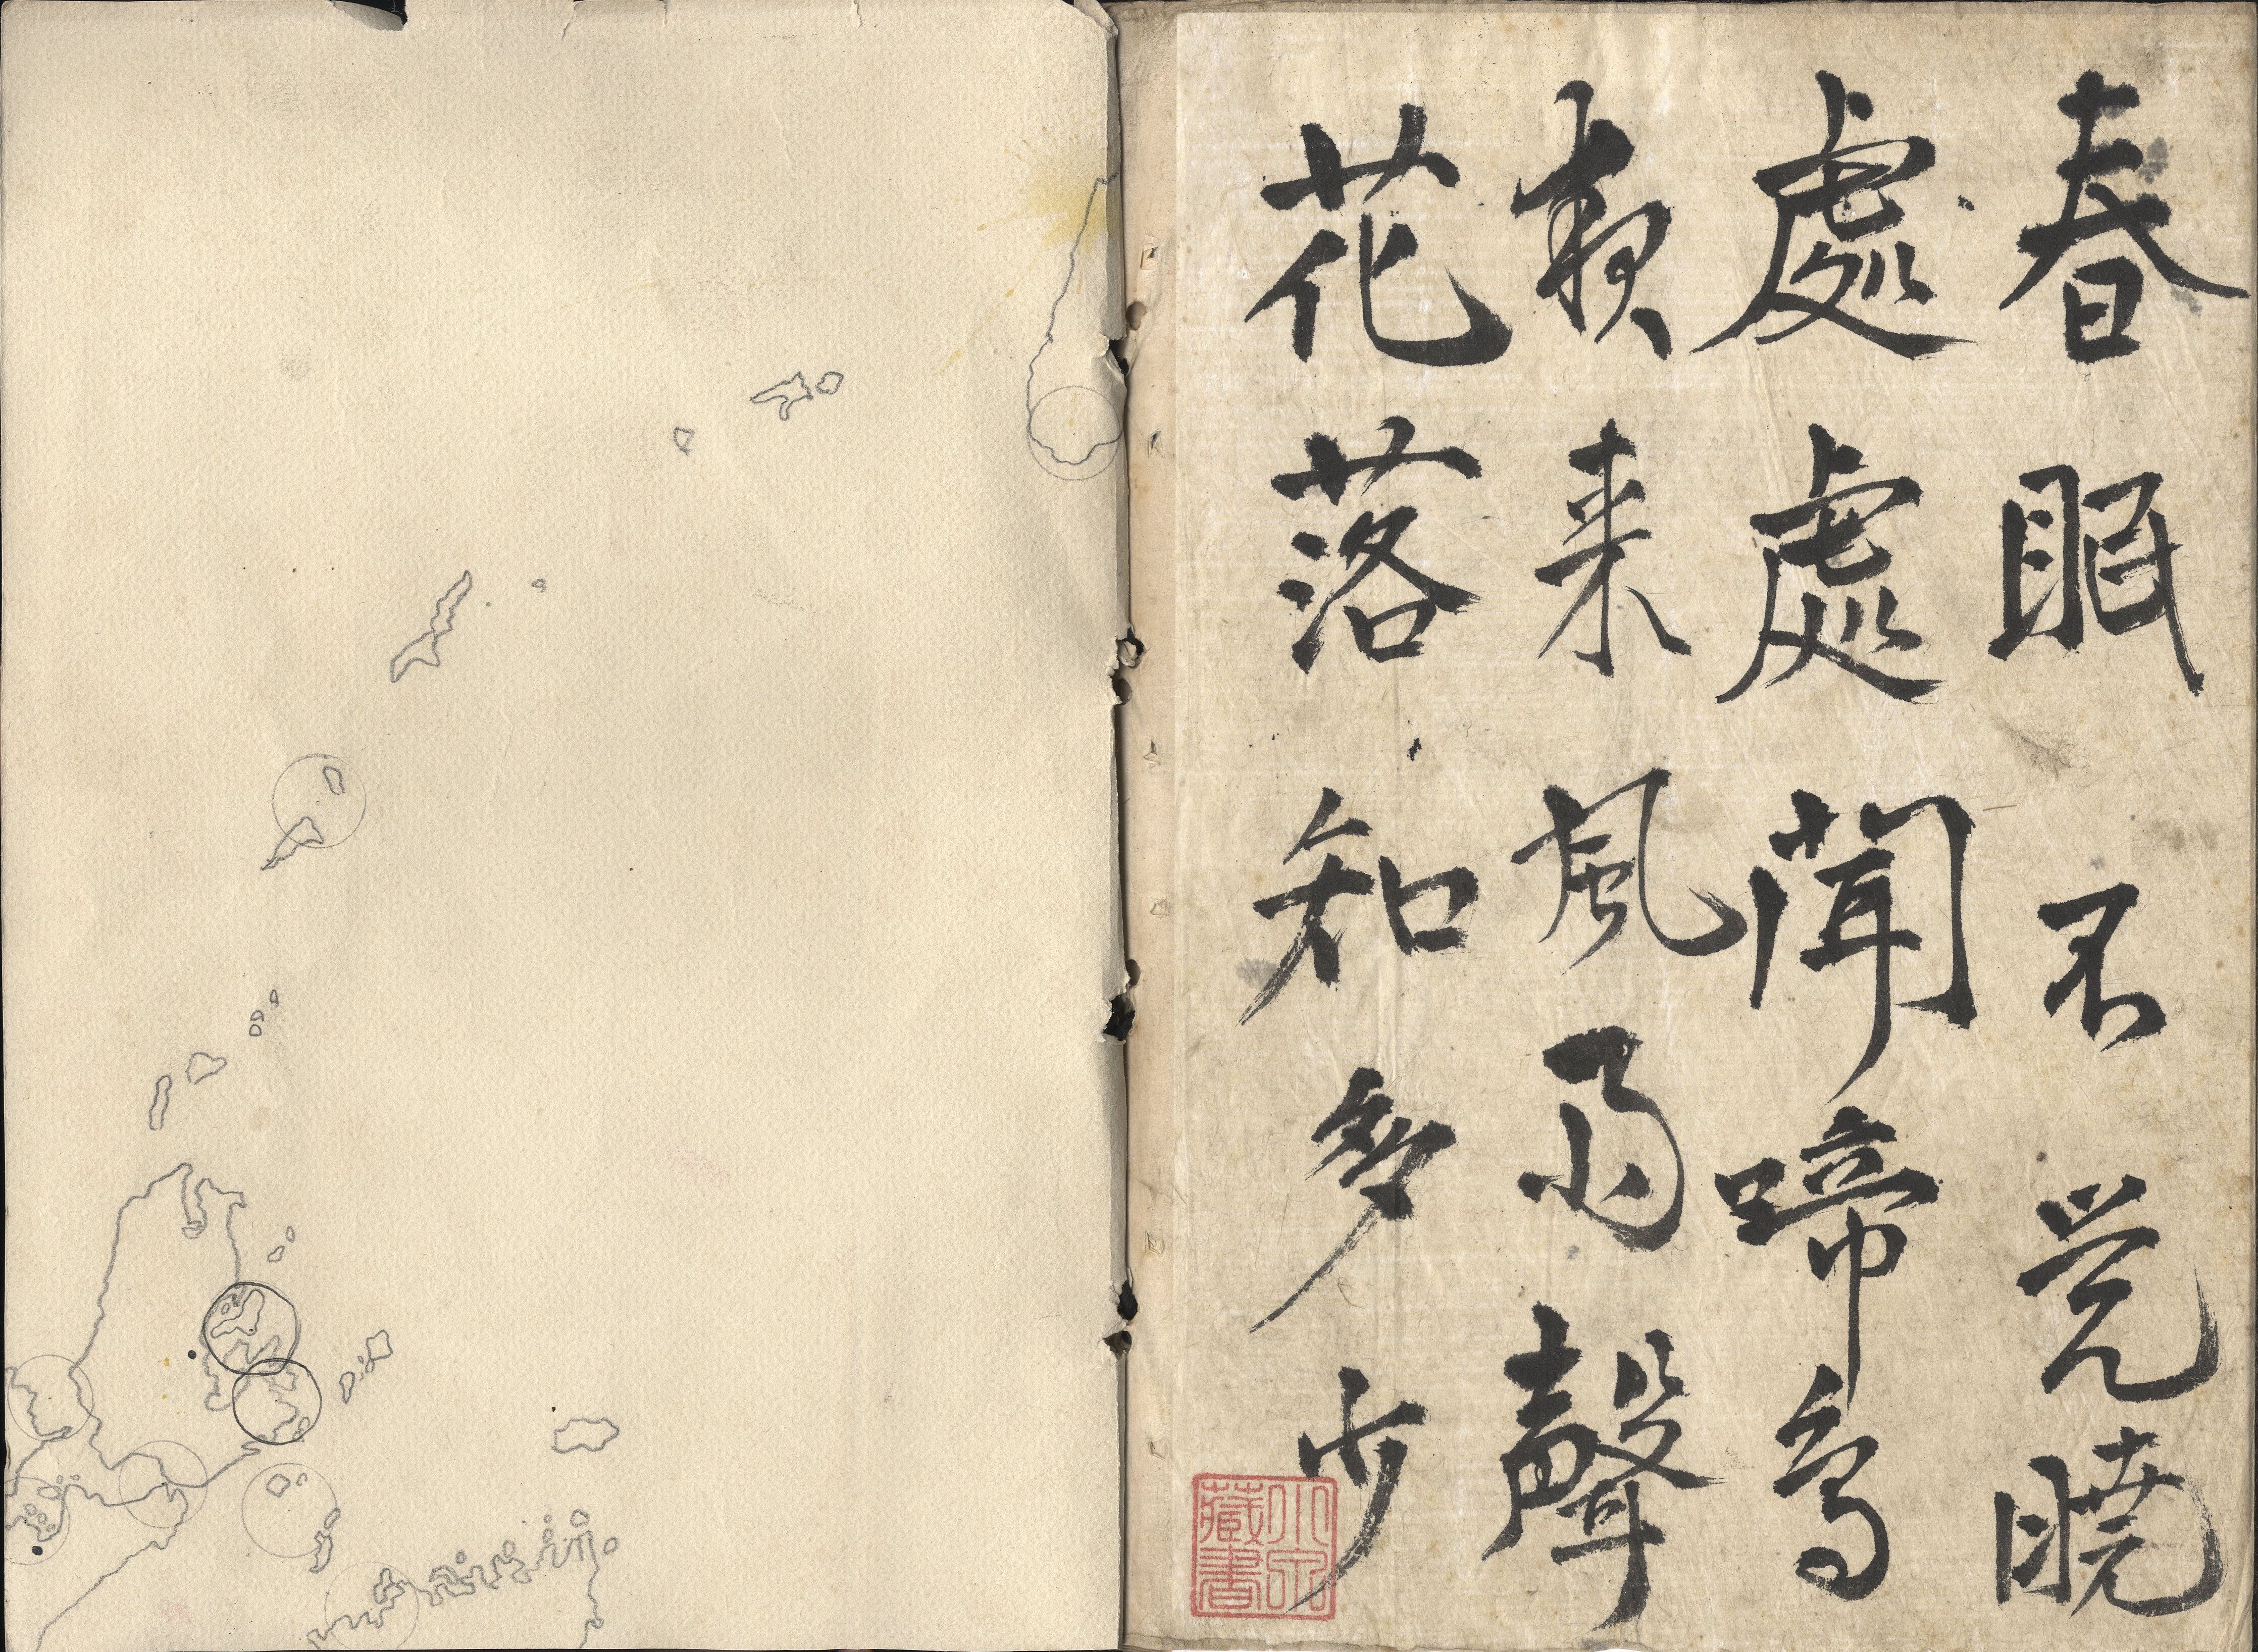 春眠不覚暁
處處聞啼鳥
夜来風雨聲
花落知多少
藏書